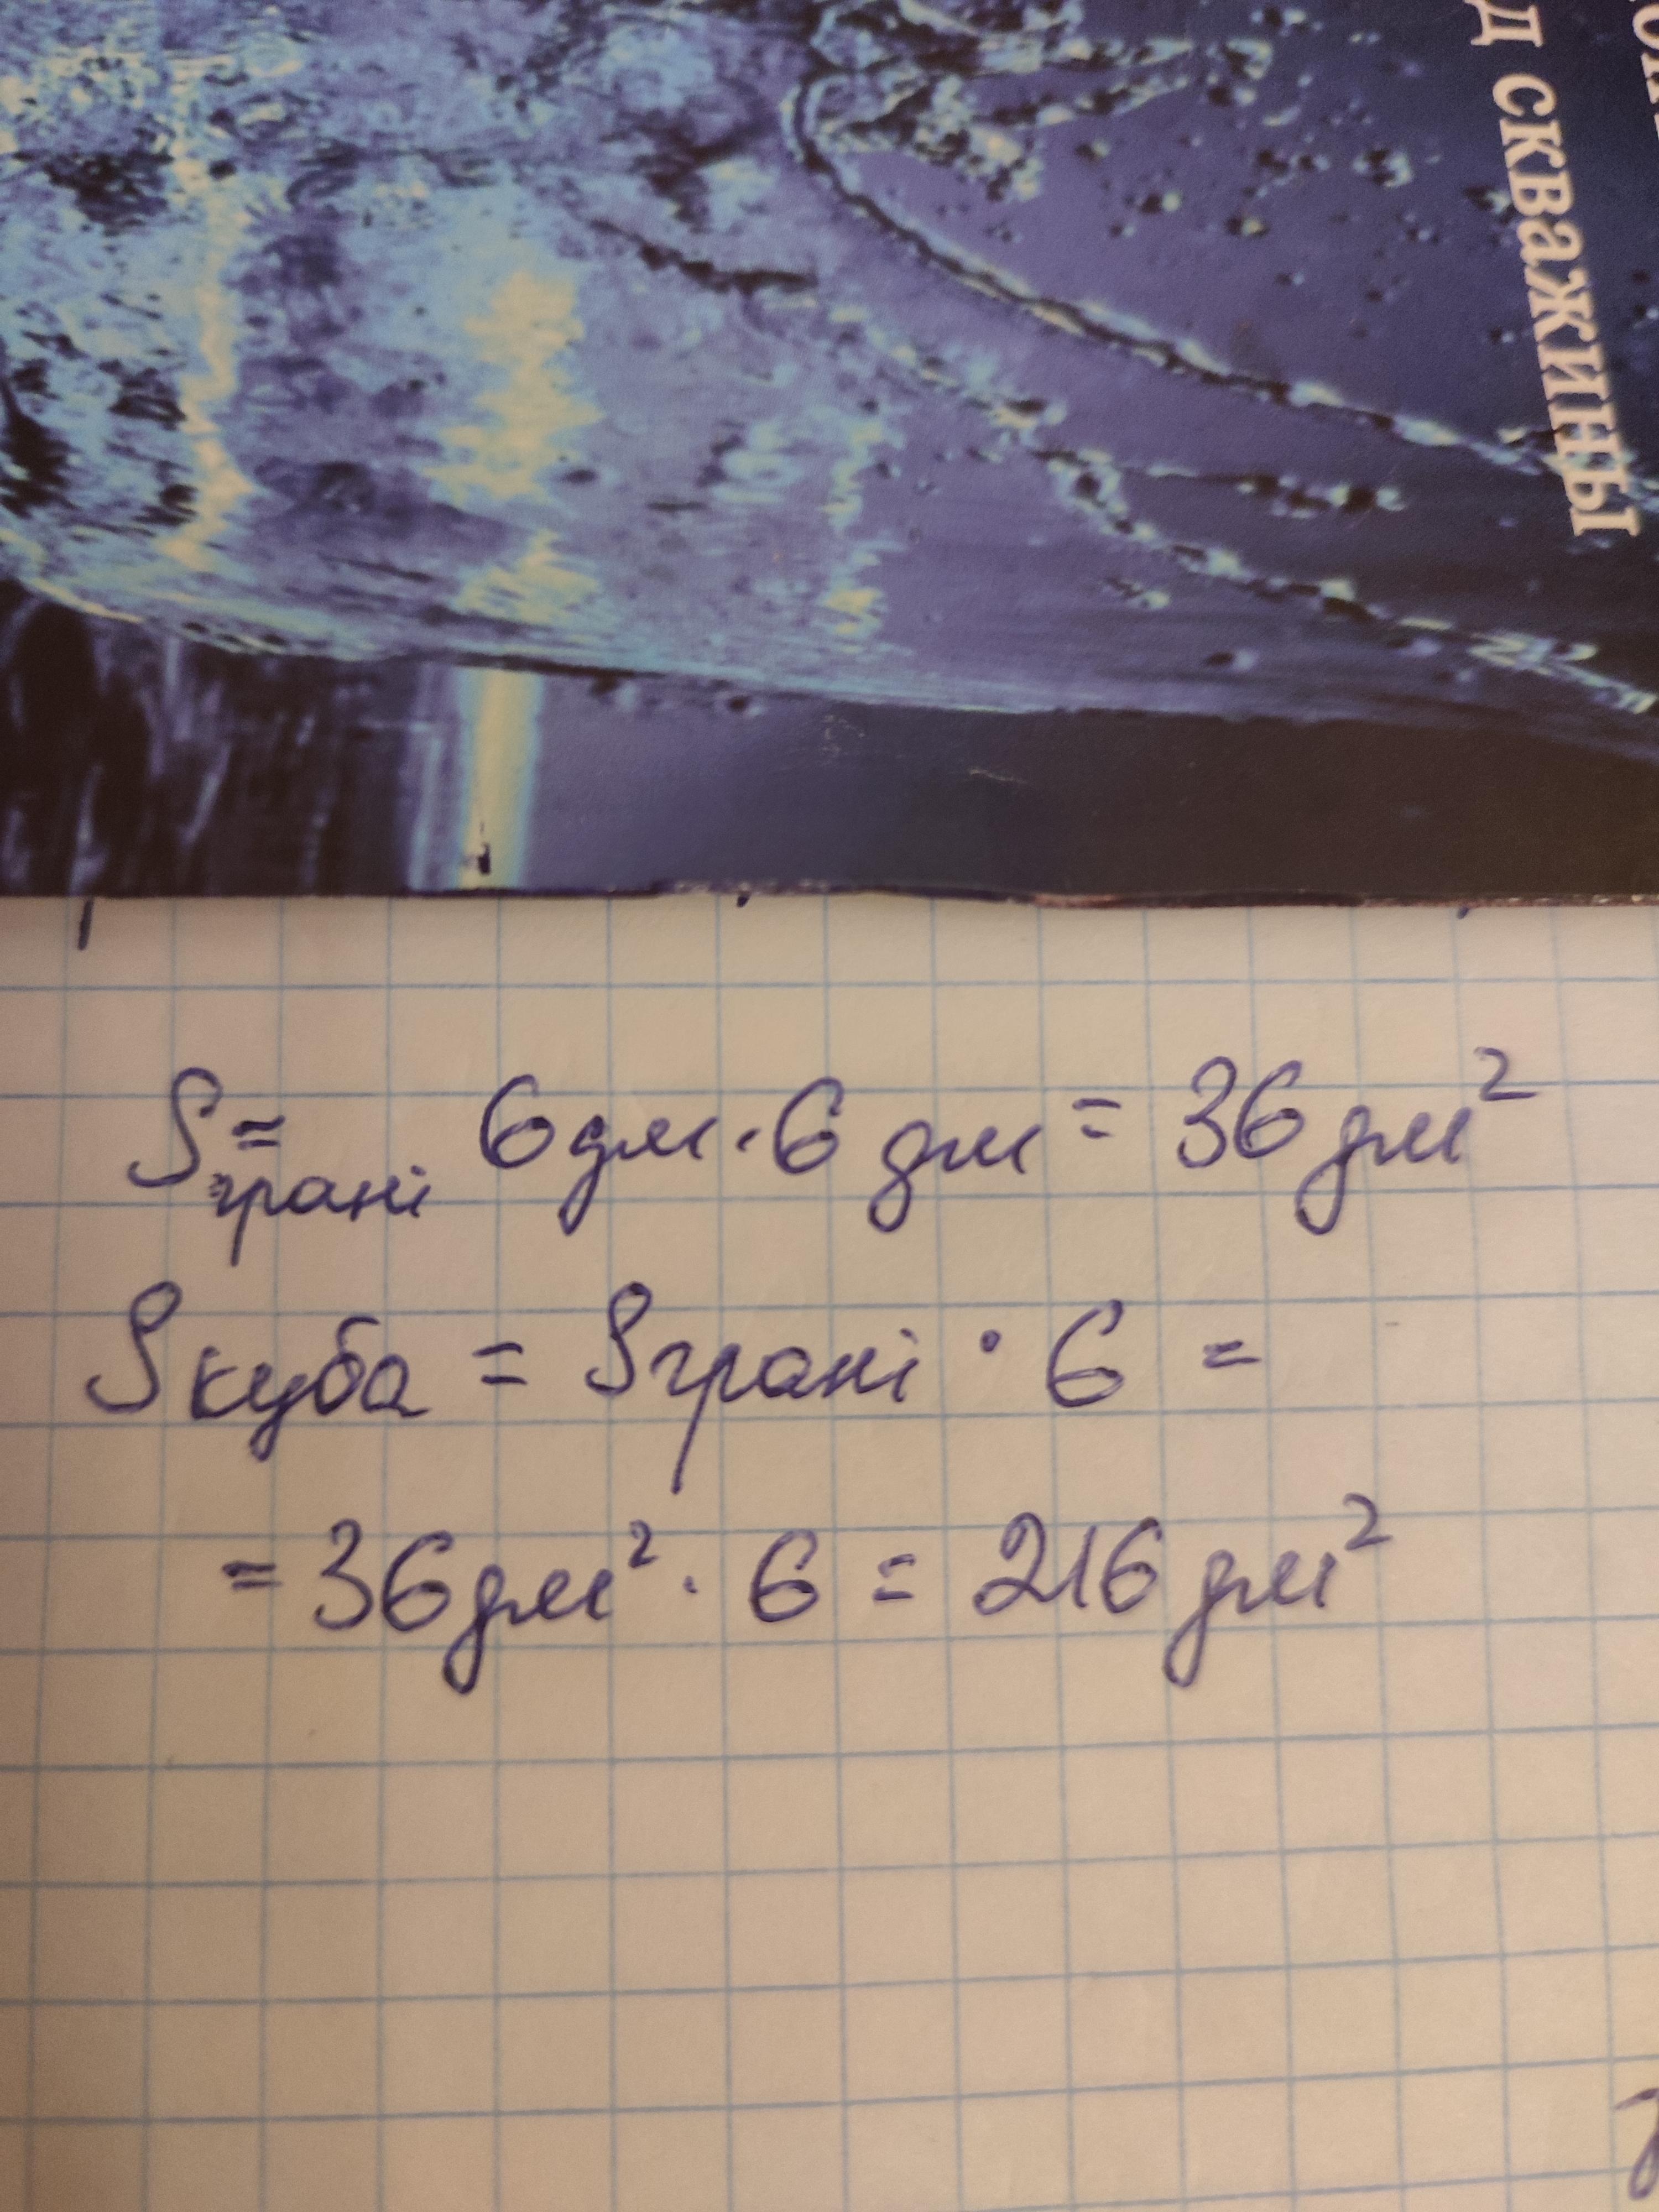 д скважины
S грані = 6 дм · 6 дм = 36 дм²
S куба = S грані · 6 =
= 36 дм² · 6 = 216 дм²